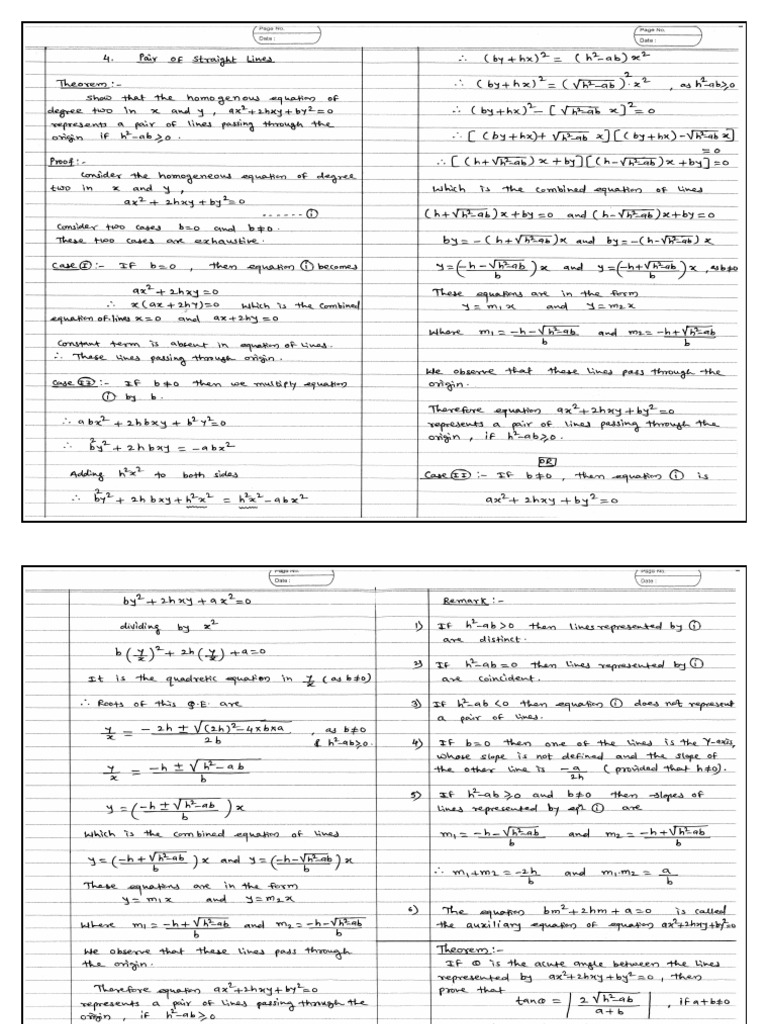 Page No.
Date :
4. Pair of Straight Lines
Theorem :-
Show that the homogenous equation of
degree two in x and y, ax²+2hxy+by²=0
represents a pair of lines passing through the
origin if h²-ab≥0.
Proof :-
Consider the homogeneous equation of degree
two in x and y,
ax² + 2hxy + by² = 0
------ (i)
Consider two cases b=0 and b≠0.
These two cases are exhaustive.
Case (I) :- If b=0, then equation (i) becomes
ax² + 2hxy = 0
∴ x(ax+2hy)=0 which is the combined
equation of lines x=0 and ax+2hy=0
Constant term is absent in equation of lines.
∴ These lines passing through origin.
Case (II) :- If b≠0 then we multiply equation
(i) by b.
∴ abx² + 2hbxy + b²y²=0
∴ b²y² + 2hbxy = -abx²
Adding h²x² to both sides
∴ b²y² + 2hbxy + h²x² = h²x² - abx²
Page No.
Date :
∴ (by+hx)² = (h²-ab)x²
∴ (by+hx)² = (√h²-ab)²·x² , as h²-ab≥0
∴ (by+hx)² - [√h²-ab x]² = 0
∴ [(by+hx)+√h²-ab x][(by+hx)-√h²-ab x]
= 0
∴ [(h+√h²-ab)x+by][(h-√h²-ab)x+by]=0
Which is the combined equation of lines
(h+√h²-ab)x+by=0 and (h-√h²-ab)x+by=0
by=-(h+√h²-ab)x and by=-(h-√h²-ab)x
y=(-h-√h²-ab/b)x and y=(-h+√h²-ab/b)x, as b≠0
These equations are in the form
y=m₁x and y=m₂x
Where m₁=-h-√h²-ab/b and m₂=-h+√h²-ab/b
We observe that these lines pass through the
origin.
Therefore equation ax²+2hxy+by²=0
represents a pair of lines passing through the
origin, if h²-ab≥0.
OR
Case (II) :- If b≠0, then equation (i) is
ax²+2hxy+by²=0
Page No.
Date :
by²+2hxy+ax²=0
dividing by x²
b(y/x)²+2h(y/x)+a=0
It is the quadretic equation in y/x (as b≠0)
∴ Roots of this Q.E. are
y/x = -2h±√(2h)²-4×b×a/2b , as b≠0
& h²-ab≥0.
y/x = -h±√h²-ab/b
y=(-h±√h²-ab/b)x
Which is the combined equation of lines
y=(-h+√h²-ab/b)x and y=(-h-√h²-ab/b)x
These equations are in the form
y=m₁x and y=m₂x
Where m₁=-h+√h²-ab/b and m₂=-h-√h²-ab/b
We observe that these lines pass through
the origin.
Therefore equation ax²+2hxy+by²=0
represents a pair of lines passing through the
origin, if h²-ab≥0
Page No.
Date :
Remark :-
1) If h²-ab>0 then lines represented by (i)
are distinct.
2) If h²-ab=0 then lines represented by (i)
are coincident.
3) If h²-ab<0 then equation (i) does not represent
a pair of lines.
4) If b=0 then one of the lines is the Y-axis,
whose slope is not defined and the slope of
the other line is -a/2h (provided that h≠0).
5) If h²-ab≥0 and b≠0 then slopes of
lines represented by eqⁿ (i) are
m₁=-h-√h²-ab/b and m₂=-h+√h²-ab/b
∴ m₁+m₂=-2h/b and m₁·m₂=a/b
6) The equation bm²+2hm+a=0 is called
the auxiliary equation of equation ax²+2hxy+by²=0
Theorem :-
If θ is the acute angle between the lines
represented by ax²+2hxy+by²=0, then
prove that
tanθ = |2√h²-ab/a+b| , if a+b≠0